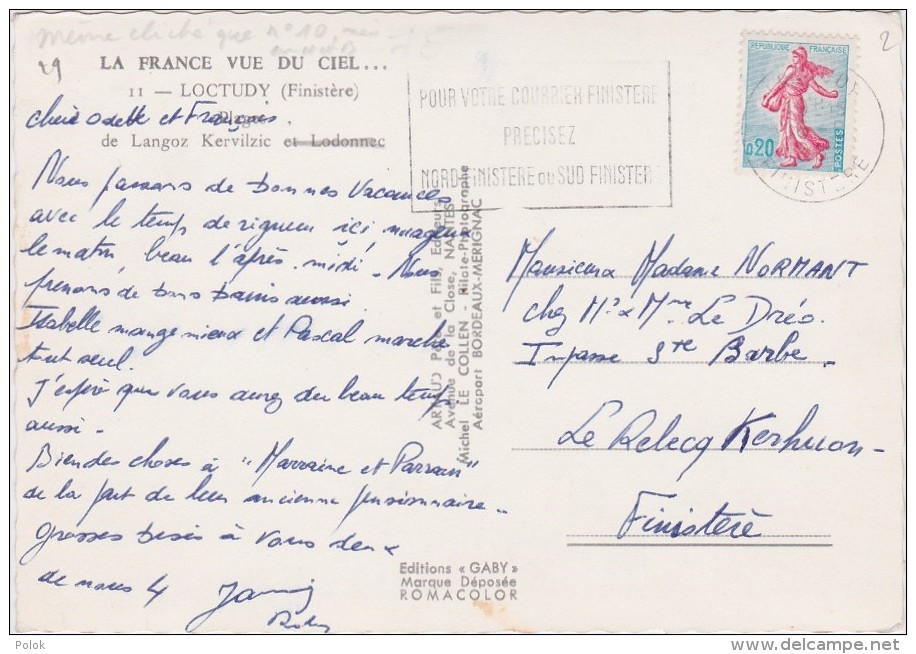 Même cliché que n° 10,
29
2
LA FRANCE VUE DU CIEL...
11 — LOCTUDY (Finistère)
Plages
de Langoz Kervilzic et Lodonnec
POUR VOTRE COURRIER FINISTERE
PRECISEZ
NORD-FINISTERE OU SUD FINISTERE
REPUBLIQUE FRANÇAISE
0,20
POSTES
FINISTERE
chère Odette et François.
Nous passons de bonnes vacances
avec le temps de rigueur ici nuageux
le matin, beau l'après-midi - Nous
prenons de bons bains aussi.
Isabelle mange mieux et Pascal marche
tout seul.
J'espère que vous avez du beau temps
aussi -
Bien des choses à "Marraine et Parrain"
de la part de leur ancienne pensionnaire -
Grosses bises à vous deux
de nous 4
ARNAUD Père et Fils, Editeurs
Avenue de la Close, NANTES
Michel LE COLLEN - Pilote-Photographe
Aéroport BORDEAUX-MERIGNAC
Monsieur Madame NORMANT
chez Mr & Mme Le Dréo.
Impasse Ste Barbe -
Le Relecq Kerhuon -
Finistère
Editions « GABY »
Marque Déposée
ROMACOLOR
Polok
www.delcampe.net